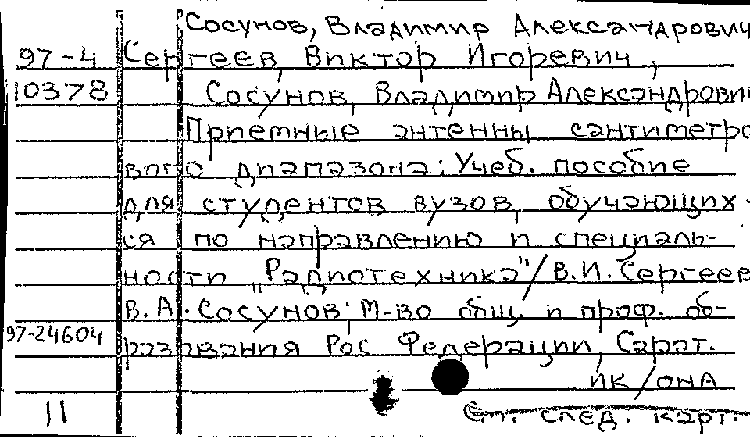 Сосунов, Владимир Александрович
97-4 Сергеев, Виктор Игоревич,
10378 Сосунов, Владимир Александрович
Приемные антенны сантиметро
вого диапазона: Учеб. пособие
для студентов вузов, обучающих-
ся по направлению и специаль-
ности „Радиотехника"/В.И. Сергеев
В.А. Сосунов; М-во общ. и проф. об-
97-24604 разования Рос Федерации, Сарат.
ИК/ОНА
11 См. след. карт.